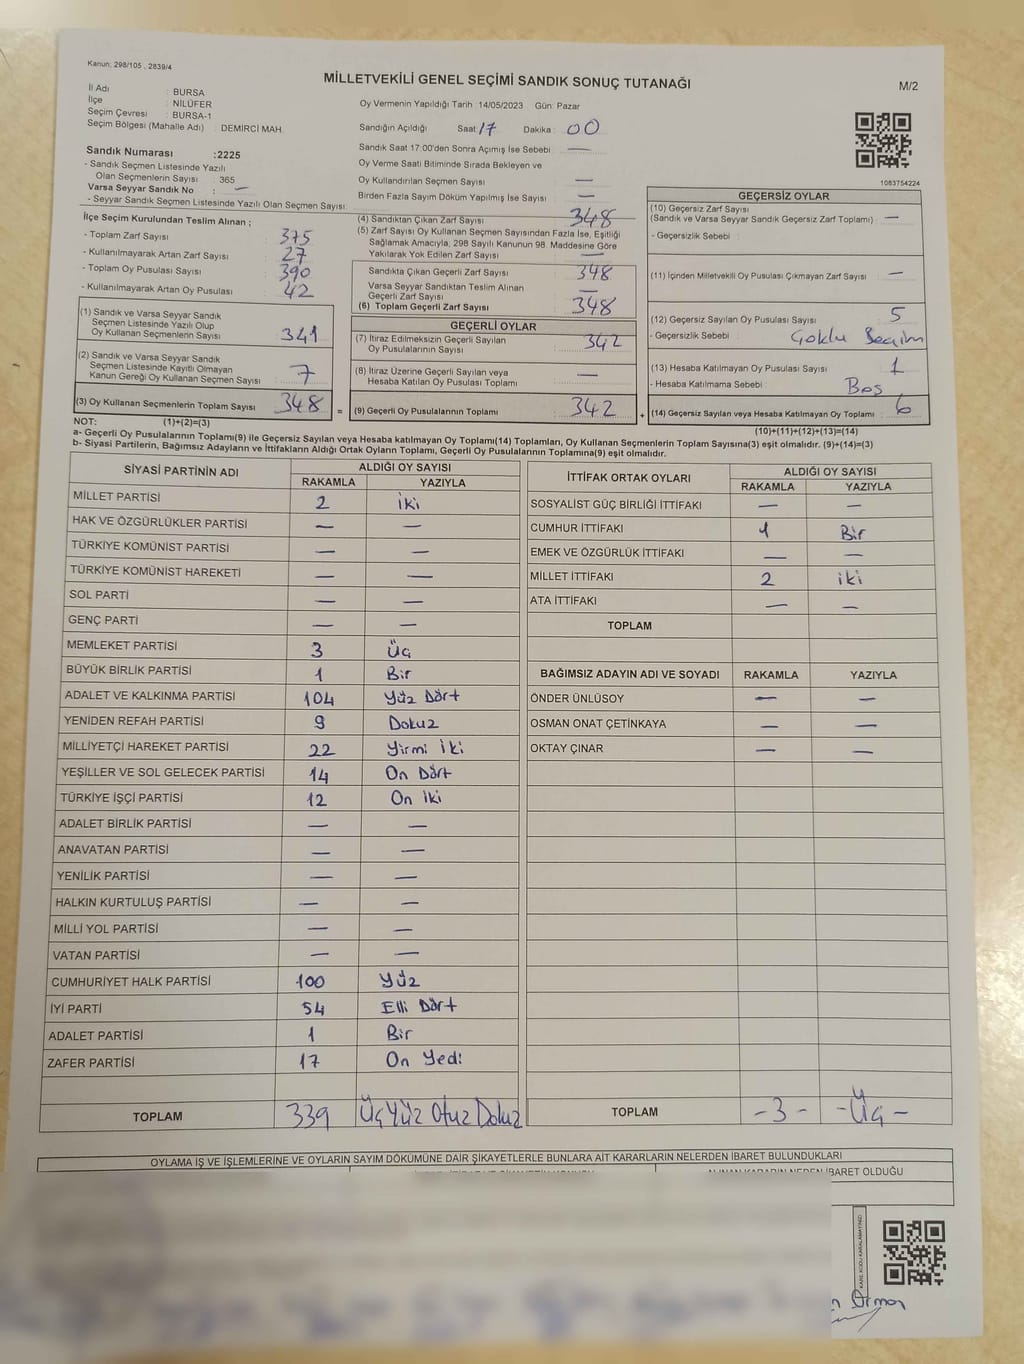 Kanun: 298/105 , 2839/4
MİLLETVEKİLİ GENEL SEÇİMİ SANDIK SONUÇ TUTANAĞI
M/2
İl Adı : BURSA
İlçe : NİLÜFER
Seçim Çevresi : BURSA-1
Seçim Bölgesi (Mahalle Adı) : DEMİRCİ MAH.
Sandık Numarası :2225
- Sandık Seçmen Listesinde Yazılı
Olan Seçmenlerin Sayısı : 365
Varsa Seyyar Sandık No : —
- Seyyar Sandık Seçmen Listesinde Yazılı Olan Seçmen Sayısı:
Oy Vermenin Yapıldığı Tarih :14/05/2023 Gün: Pazar
Sandığın Açıldığı Saat: 17 Dakika : 00
Sandık Saat 17:00'den Sonra Açımış İse Sebebi : —
Oy Verme Saati Bitiminde Sırada Bekleyen ve
Oy Kullandırılan Seçmen Sayısı —
Birden Fazla Sayım Döküm Yapılmış İse Sayısı : —
1083754224
İlçe Seçim Kurulundan Teslim Alınan ;
- Toplam Zarf Sayısı : 375
- Kullanılmayarak Artan Zarf Sayısı : 27
- Toplam Oy Pusulası Sayısı : 390
- Kullanılmayarak Artan Oy Pusulası : 42
(1) Sandık ve Varsa Seyyar Sandık
Seçmen Listesinde Yazılı Olup
Oy Kullanan Seçmenlerin Sayısı : 341
(2) Sandık ve Varsa Seyyar Sandık
Seçmen Listesinde Kayıtlı Olmayan
Kanun Gereği Oy Kullanan Seçmen Sayısı : 7
(3) Oy Kullanan Seçmenlerin Toplam Sayısı : 348 =
(4) Sandıktan Çıkan Zarf Sayısı : 348
(5) Zarf Sayısı Oy Kullanan Seçmen Sayısından Fazla İse, Eşitliği
Sağlamak Amacıyla, 298 Sayılı Kanunun 98. Maddesine Göre
Yakılarak Yok Edilen Zarf Sayısı : —
Sandıkta Çıkan Geçerli Zarf Sayısı : 348
Varsa Seyyar Sandıktan Teslim Alınan
Geçerli Zarf Sayısı : —
(6) Toplam Geçerli Zarf Sayısı : 348
GEÇERLİ OYLAR
(7) İtiraz Edilmeksizin Geçerli Sayılan
Oy Pusulalarının Sayısı : 342
(8) İtiraz Üzerine Geçerli Sayılan veya
Hesaba Katılan Oy Pusulası Toplamı : —
(9) Geçerli Oy Pusulalarının Toplamı : 342 +
GEÇERSİZ OYLAR
(10) Geçersiz Zarf Sayısı
(Sandık ve Varsa Seyyar Sandık Geçersiz Zarf Toplamı) : —
- Geçersizlik Sebebi :
(11) İçinden Milletvekili Oy Pusulası Çıkmayan Zarf Sayısı : —
(12) Geçersiz Sayılan Oy Pusulası Sayısı : 5
- Geçersizlik Sebebi : Çoklu Seçim
(13) Hesaba Katılmayan Oy Pusulası Sayısı : 1
- Hesaba Katılmama Sebebi : Boş
(14) Geçersiz Sayılan veya Hesaba Katılmayan Oy Toplamı : 6
NOT: (1)+(2)=(3)
(10)+(11)+(12)+(13)=(14)
a- Geçerli Oy Pusulalarının Toplamı(9) ile Geçersiz Sayılan veya Hesaba katılmayan Oy Toplamı(14) Toplamları, Oy Kullanan Seçmenlerin Toplam Sayısına(3) eşit olmalıdır. (9)+(14)=(3)
b- Siyasi Partilerin, Bağımsız Adayların ve İttifakların Aldığı Ortak Oyların Toplamı, Geçerli Oy Pusulalarının Toplamına(9) eşit olmalıdır.
SİYASİ PARTİNİN ADI ALDIĞI OY SAYISI
RAKAMLA YAZIYLA
MİLLET PARTİSİ 2 İki
HAK VE ÖZGÜRLÜKLER PARTİSİ — —
TÜRKİYE KOMÜNİST PARTİSİ — —
TÜRKİYE KOMÜNİST HAREKETİ — —
SOL PARTİ — —
GENÇ PARTİ — —
MEMLEKET PARTİSİ 3 Üç
BÜYÜK BİRLİK PARTİSİ 1 Bir
ADALET VE KALKINMA PARTİSİ 104 Yüz Dört
YENİDEN REFAH PARTİSİ 9 Dokuz
MİLLİYETÇİ HAREKET PARTİSİ 22 Yirmi İki
YEŞİLLER VE SOL GELECEK PARTİSİ 14 On Dört
TÜRKİYE İŞÇİ PARTİSİ 12 On iki
ADALET BİRLİK PARTİSİ — —
ANAVATAN PARTİSİ — —
YENİLİK PARTİSİ — —
HALKIN KURTULUŞ PARTİSİ — —
MİLLİ YOL PARTİSİ — —
VATAN PARTİSİ — —
CUMHURİYET HALK PARTİSİ 100 Yüz
İYİ PARTİ 54 Elli Dört
ADALET PARTİSİ 1 Bir
ZAFER PARTİSİ 17 On Yedi
TOPLAM 339 Üç Yüz Otuz Dokuz
İTTİFAK ORTAK OYLARI ALDIĞI OY SAYISI
RAKAMLA YAZIYLA
SOSYALİST GÜÇ BİRLİĞİ İTTİFAKI — —
CUMHUR İTTİFAKI 1 Bir
EMEK VE ÖZGÜRLÜK İTTİFAKI — —
MİLLET İTTİFAKI 2 iki
ATA İTTİFAKI — —
TOPLAM
BAĞIMSIZ ADAYIN ADI VE SOYADI RAKAMLA YAZIYLA
ÖNDER ÜNLÜSOY — —
OSMAN ONAT ÇETİNKAYA — —
OKTAY ÇINAR — —
TOPLAM -3- -Üç-
OYLAMA İŞ VE İŞLEMLERİNE VE OYLARIN SAYIM DÖKÜMÜNE DAİR ŞİKAYETLERLE BUNLARA AİT KARARLARIN NELERDEN İBARET BULUNDUKLARI
ALINAN KARARIN NEDEN İBARET OLDUĞU